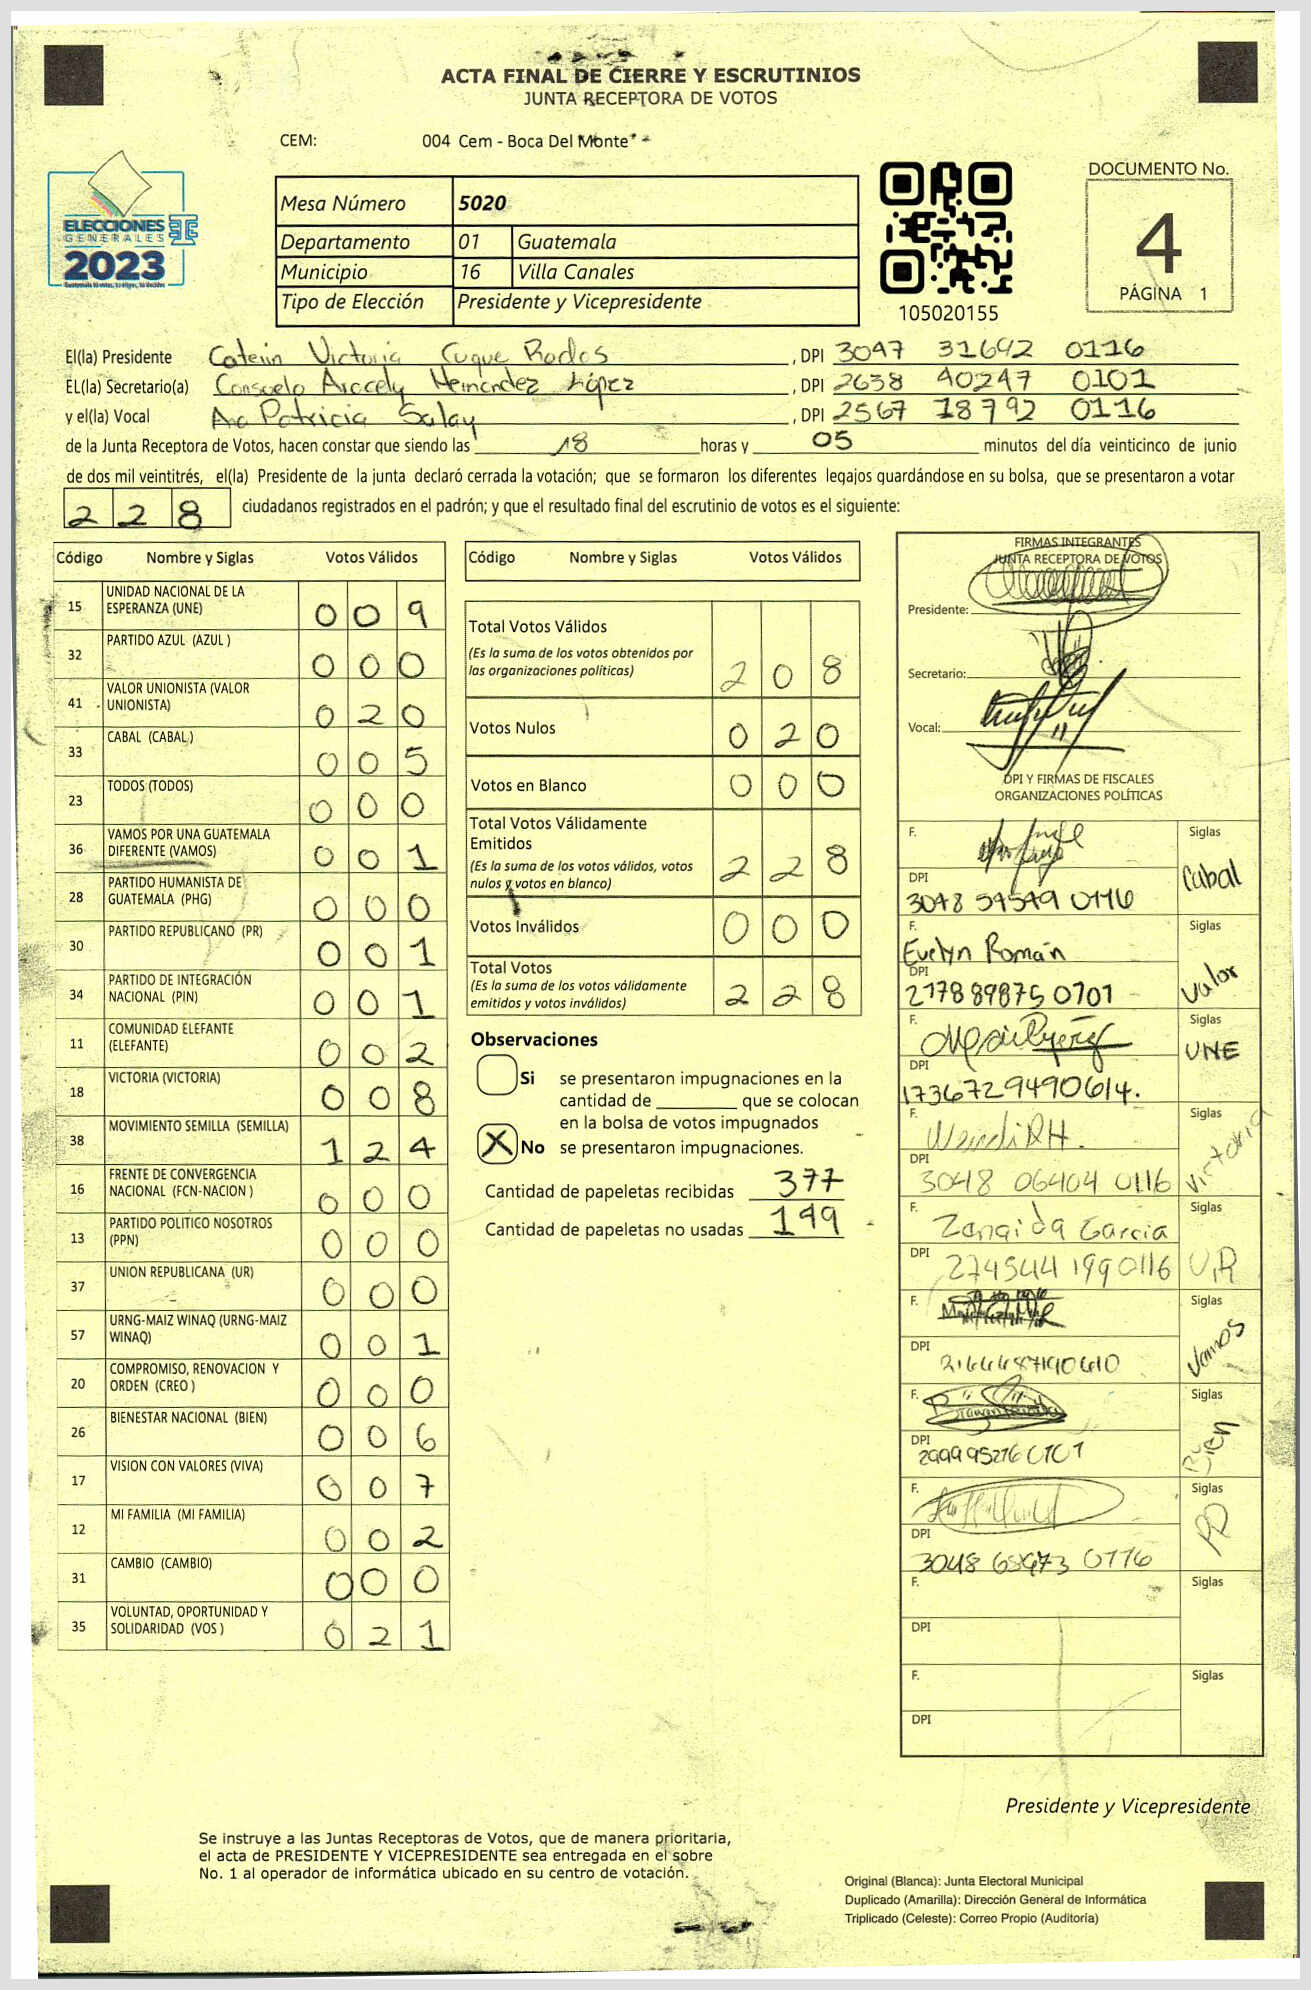 ACTA FINAL DE CIERRE Y ESCRUTINIOS
JUNTA RECEPTORA DE VOTOS
CEM: 004 Cem - Boca Del Monte
ELECCIONES
GENERALES
2023
Mesa Número 5020
Departamento 01 Guatemala
Municipio 16 Villa Canales
Tipo de Elección Presidente y Vicepresidente
105020155
DOCUMENTO No.
4
PÁGINA 1
El(la) Presidente Victoria Cuque , DPI 3047 31642 0116
EL(la) Secretario(a) Consuelo Aracely Hernández López , DPI 2638 40247 0101
y el(la) Vocal Ana Patricia Salay , DPI 2567 18792 0116
de la Junta Receptora de Votos, hacen constar que siendo las 18 horas y 05 minutos del día veinticinco de junio
de dos mil veintitrés, el(la) Presidente de la junta declaró cerrada la votación; que se formaron los diferentes legajos guardándose en su bolsa, que se presentaron a votar
228 ciudadanos registrados en el padrón; y que el resultado final del escrutinio de votos es el siguiente:
Código Nombre y Siglas Votos Válidos
15 UNIDAD NACIONAL DE LA ESPERANZA (UNE) 009
32 PARTIDO AZUL (AZUL ) 000
41 VALOR UNIONISTA (VALOR UNIONISTA) 020
33 CABAL (CABAL ) 005
23 TODOS (TODOS) 000
36 VAMOS POR UNA GUATEMALA DIFERENTE (VAMOS) 001
28 PARTIDO HUMANISTA DE GUATEMALA (PHG) 000
30 PARTIDO REPUBLICANO (PR) 001
34 PARTIDO DE INTEGRACIÓN NACIONAL (PIN) 001
11 COMUNIDAD ELEFANTE (ELEFANTE) 002
18 VICTORIA (VICTORIA) 008
38 MOVIMIENTO SEMILLA (SEMILLA) 124
16 FRENTE DE CONVERGENCIA NACIONAL (FCN-NACION ) 000
13 PARTIDO POLITICO NOSOTROS (PPN) 000
37 UNION REPUBLICANA (UR) 000
57 URNG-MAIZ WINAQ (URNG-MAIZ WINAQ) 001
20 COMPROMISO, RENOVACION Y ORDEN (CREO ) 000
26 BIENESTAR NACIONAL (BIEN) 006
17 VISION CON VALORES (VIVA) 007
12 MI FAMILIA (MI FAMILIA) 002
31 CAMBIO (CAMBIO) 000
35 VOLUNTAD, OPORTUNIDAD Y SOLIDARIDAD (VOS ) 021
Código Nombre y Siglas Votos Válidos
Total Votos Válidos 208
(Es la suma de los votos obtenidos por
las organizaciones políticas)
Votos Nulos 020
Votos en Blanco 000
Total Votos Válidamente
Emitidos 228
(Es la suma de los votos válidos, votos
nulos y votos en blanco)
Votos Inválidos 000
Total Votos 228
(Es la suma de los votos válidamente
emitidos y votos inválidos)
Observaciones
Si se presentaron impugnaciones en la
cantidad de ________ que se colocan
en la bolsa de votos impugnados
X No se presentaron impugnaciones.
Cantidad de papeletas recibidas 377
Cantidad de papeletas no usadas 149
FIRMAS INTEGRANTES
JUNTA RECEPTORA DE VOTOS
Presidente:
Secretario:
Vocal:
DPI Y FIRMAS DE FISCALES
ORGANIZACIONES POLÍTICAS
F. Siglas
Cabal
DPI
F. Siglas
Evelyn Román Valor
DPI
2178898750701
F. Siglas
UNE
DPI
1736729490614.
F. Siglas
Victoria
DPI
3048 06404 0116
F. Siglas
Garcia
DPI
274544 1990116
F. Siglas
Vamos
DPI
F. Siglas
Bien
DPI
F. Siglas
DPI
F. Siglas
DPI
F. Siglas
DPI
Presidente y Vicepresidente
Se instruye a las Juntas Receptoras de Votos, que de manera prioritaria,
el acta de PRESIDENTE Y VICEPRESIDENTE sea entregada en el sobre
No. 1 al operador de informática ubicado en su centro de votación.
Original (Blanca): Junta Electoral Municipal
Duplicado (Amarilla): Dirección General de Informática
Triplicado (Celeste): Correo Propio (Auditoría)